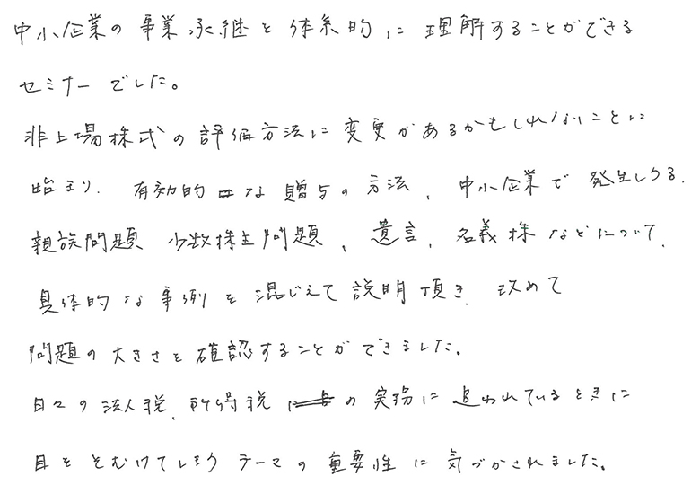 中小企業の事業承継を体系的に理解することができる
セミナーでした。
非上場株式の評価方法に変更があるかもしれないことに
始まり、有効的な贈与の方法、中小企業で発生しうる、
親族問題 少数株主問題、遺言、名義株などについて、
具体的な事例を混じえて説明頂き、改めて
問題の大きさを確認することができました。
日々の法人税、所得税の実務に追われているときに
目をそむけてしまうテーマの重要性に気づかされました。